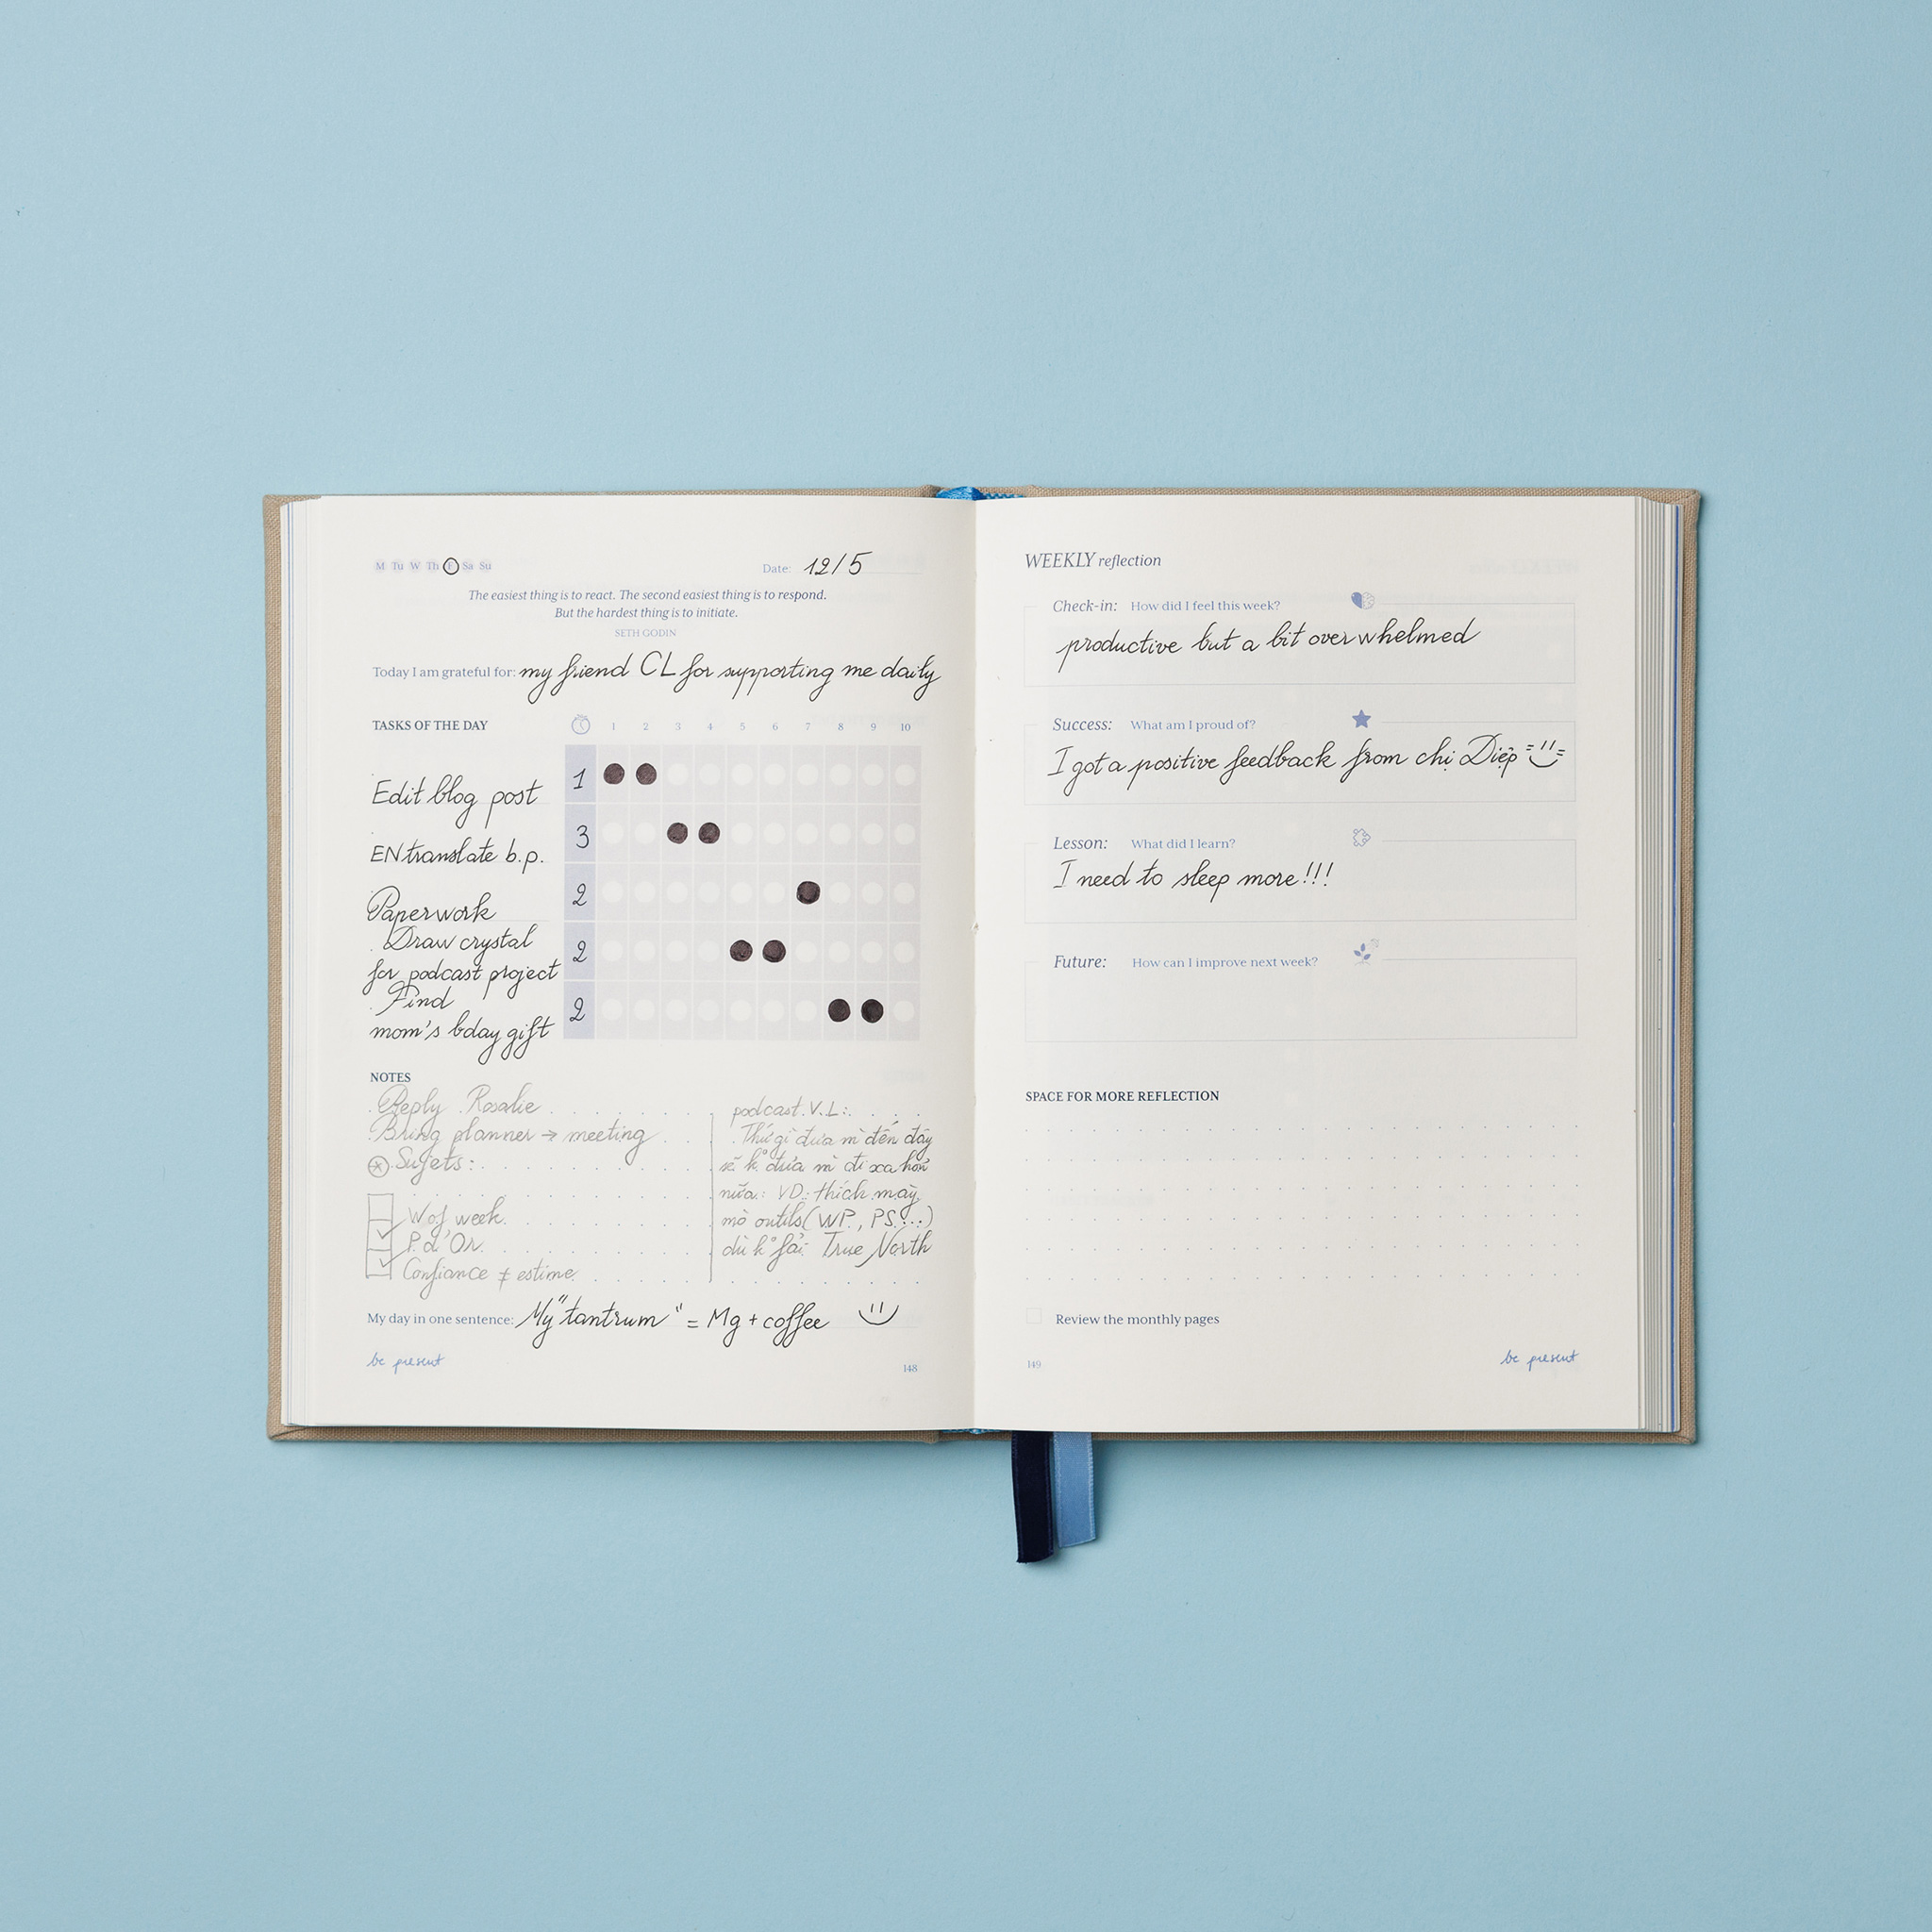 M Tu W Th F Sa Su
Date: 12/5
The easiest thing is to react. The second easiest thing is to respond.
But the hardest thing is to initiate.
SETH GODIN
Today I am grateful for: my friend CL for supporting me daily
TASKS OF THE DAY 1 2 3 4 5 6 7 8 9 10
Edit blog post 1
EN translate b.p. 3
Paperwork 2
Draw crystal
for podcast project 2
Find
mom's bday gift 2
NOTES
Reply Rosalie
Bring planner → meeting
Sujets:
W of week
P. d'Or
Confiance ≠ estime
podcast V.L:
Thứ gì đưa mì đến đây
sẽ k° đưa mì đi xa hơn
nữa: VD: thích mày
mò outils (WP, PS...)
dù k° fải True North
My day in one sentence: My "tantrum" = Mg + coffee
be present
148
WEEKLY reflection
Check-in: How did I feel this week?
productive but a bit overwhelmed
Success: What am I proud of?
I got a positive feedback from chị Diệp
Lesson: What did I learn?
I need to sleep more!!!
Future: How can I improve next week?
SPACE FOR MORE REFLECTION
Review the monthly pages
149
be present